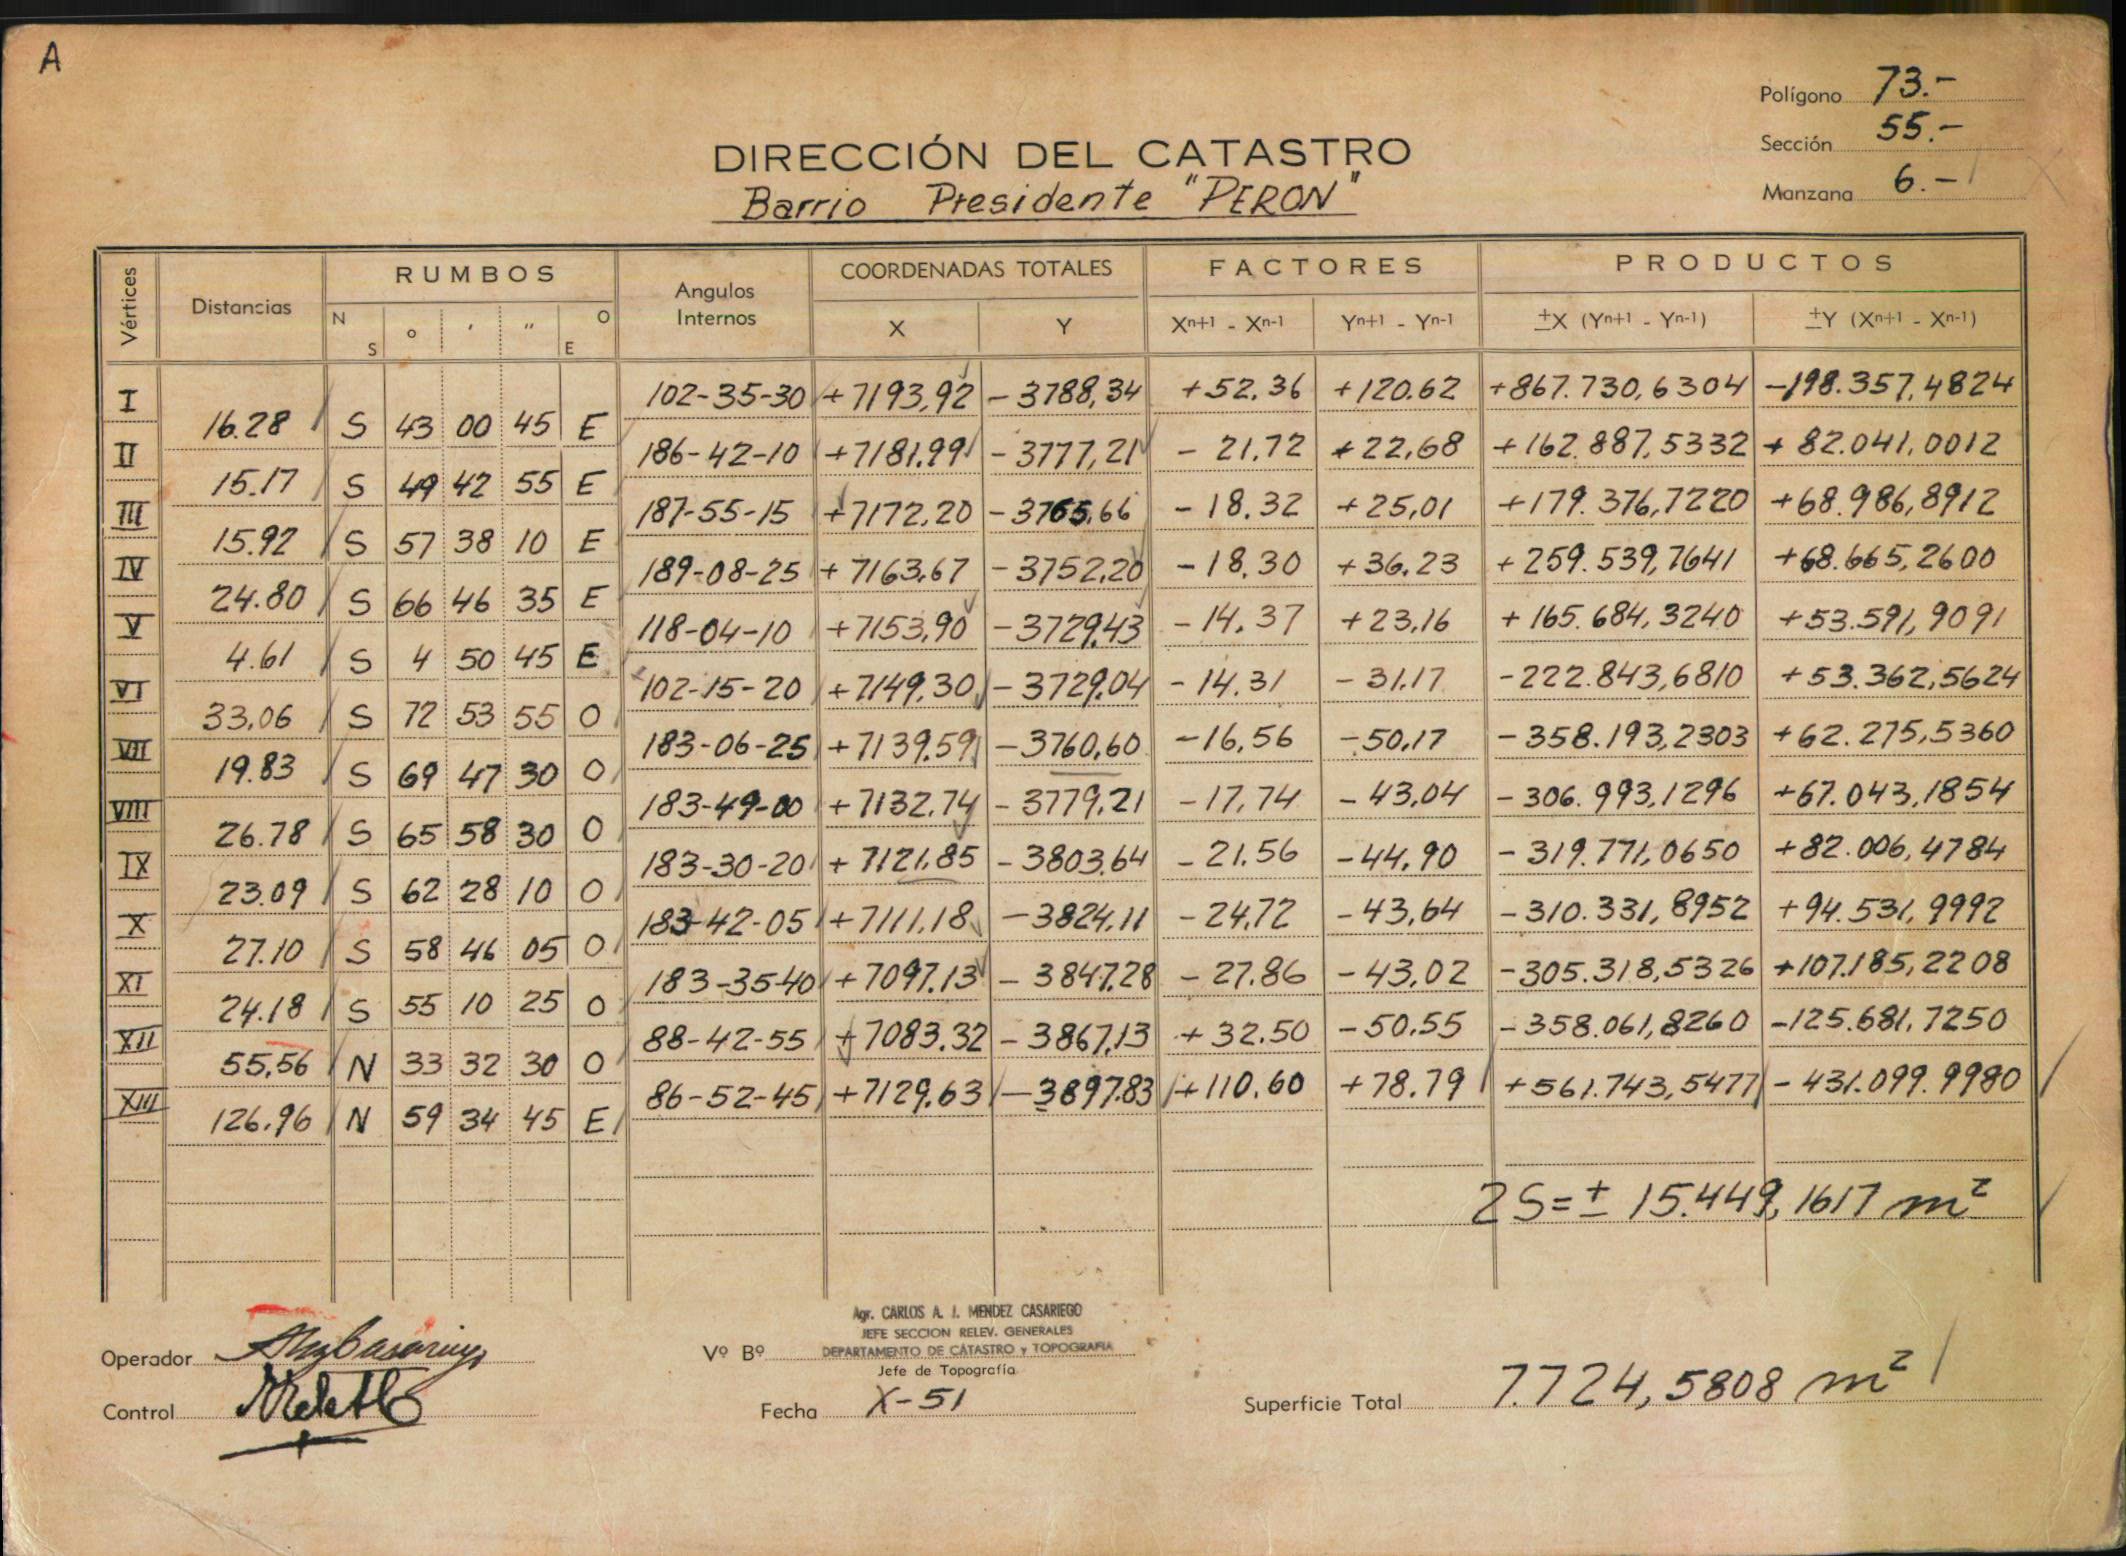 A
Polígono 73.-
Sección 55.-
Manzana 6.-
DIRECCIÓN DEL CATASTRO
Barrio Presidente "PERON"
Vértices Distancias RUMBOS Angulos Internos COORDENADAS TOTALES FACTORES PRODUCTOS
N S ° ' '' O E X Y Xn+1 - Xn-1 Yn+1 - Yn-1 ±X (Yn+1 - Yn-1) ±Y (Xn+1 - Xn-1)
I 102-35-30 +7193,92 -3788,34 +52,36 +120.62 +867.730,6304 -198.357,4824
16.28 S 43 00 45 E
II 186-42-10 +7181,99 -3777,21 -21,72 +22,68 +162.887,5332 +82.041,0012
15.17 S 49 42 55 E
III 187-55-15 +7172,20 -3765,66 -18.32 +25,01 +179.376,7220 +68.986,8912
15.92 S 57 38 10 E
IV 189-08-25 +7163,67 -3752,20 -18,30 +36,23 +259.539,7641 +68.665,2600
24.80 S 66 46 35 E
V 118-04-10 +7153,90 -3729,43 -14,37 +23,16 +165.684,3240 +53.591,9091
4.61 S 4 50 45 E
VI 102-15-20 +7149,30 -3729,04 -14,31 -31,17 -222.843,6810 +53.362,5624
33,06 S 72 53 55 O
VII 183-06-25 +7139,59 -3760,60 -16,56 -50,17 -358.193,2303 +62.275,5360
19.83 S 69 47 30 O
VIII 183-49-00 +7132,74 -3779,21 -17,74 -43,04 -306.993,1296 +67.043,1854
26.78 S 65 58 30 O
IX 183-30-20 +7121,85 -3803,64 -21,56 -44,90 -319.771,0650 +82.006,4784
23.09 S 62 28 10 O
X 183-42-05 +7111,18 -3824,11 -24,72 -43,64 -310.331,8952 +94.531,9992
27.10 S 58 46 05 O
XI 183-35-40 +7097,13 -3847,28 -27,86 -43,02 -305.318,5326 +107.185,2208
24.18 S 55 10 25 O
XII 88-42-55 +7083,32 -3867,13 +32,50 -50,55 -358.061,8260 -125.681,7250
55,56 N 33 32 30 O
XIII 86-52-45 +7129,63 -3897,83 +110,60 +78.79 +561.743,5477 -431.099.9980
126,96 N 59 34 45 E
2S=± 15.449,1617 m²
Agr. CARLOS A. I. MENDEZ CASARIEGO
JEFE SECCION RELEV. GENERALES
Operador Vº Bº DEPARTAMENTO DE CATASTRO y TOPOGRAFIA
Jefe de Topografía
Control Fecha X-51 Superficie Total 7.724,5808 m²